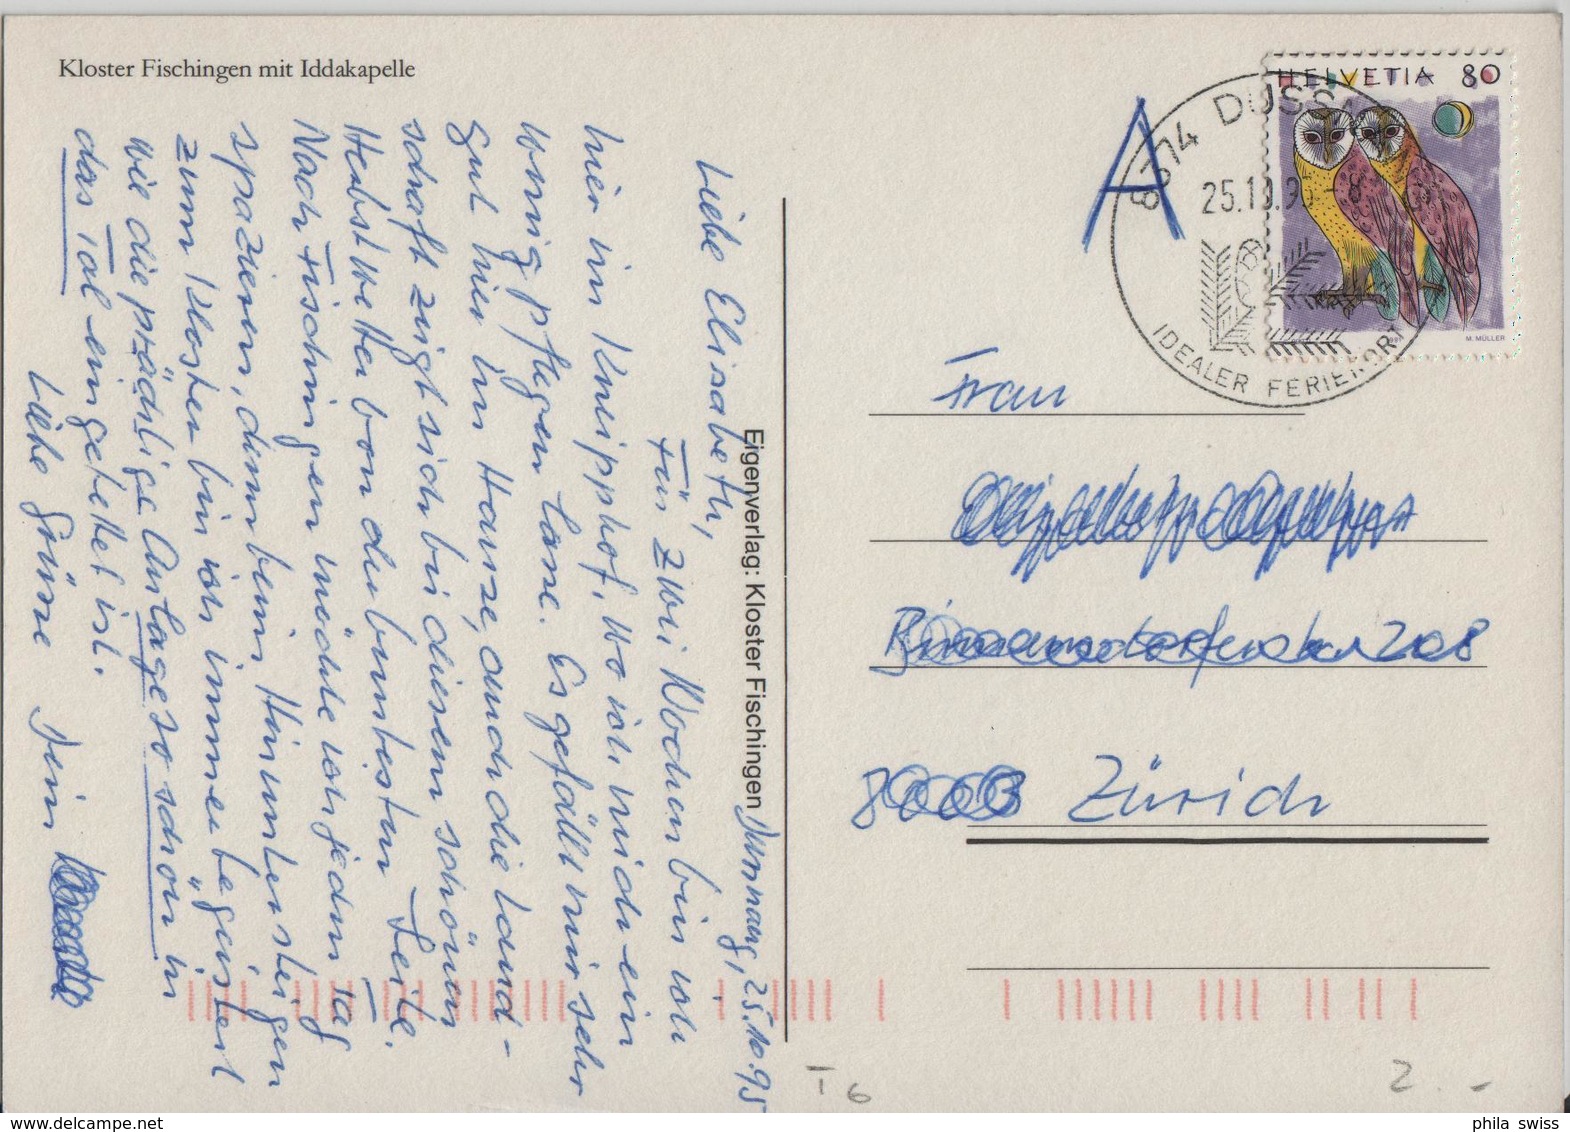 Kloster Fischingen mit Iddakapelle
Eigenverlag: Kloster Fischingen
Dussnang, 25.10.95
Liebe Elisabeth,
Für zwei Wochen bin ich
hier im Kneipphof, wo ich mich ein
wenig pflegen lasse. Es gefällt mir sehr
gut hier im Hause, auch die Land-
schaft zeigt sich bei diesem schönen
Herbstwetter von der buntesten Seite.
Nach Fischingen möchte ich jeden Tag
spazieren, denn beim Hinuntersteigen
zum Kloster bin ich immer begeistert
wie die prächtige Anlage so schön in
das Tal eingebettet ist.
Liebe Grüsse Dein
A
HELVETIA 80
M. MÜLLER
8374 DUSSN
25.10.95-8
IDEALER FERIENORT
Frau
8 Zürich
T 6
2.-
phila swiss